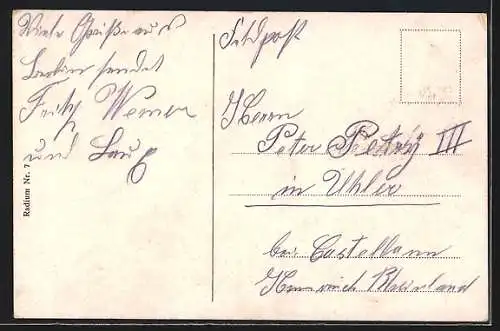 Viele Grüße aus
Berlin sendet
Fritz Werner
und
Feldpost
Herrn
Peter Petry III
in Uhler
bei Castellaun
Rheinland
Radium Nr. 7